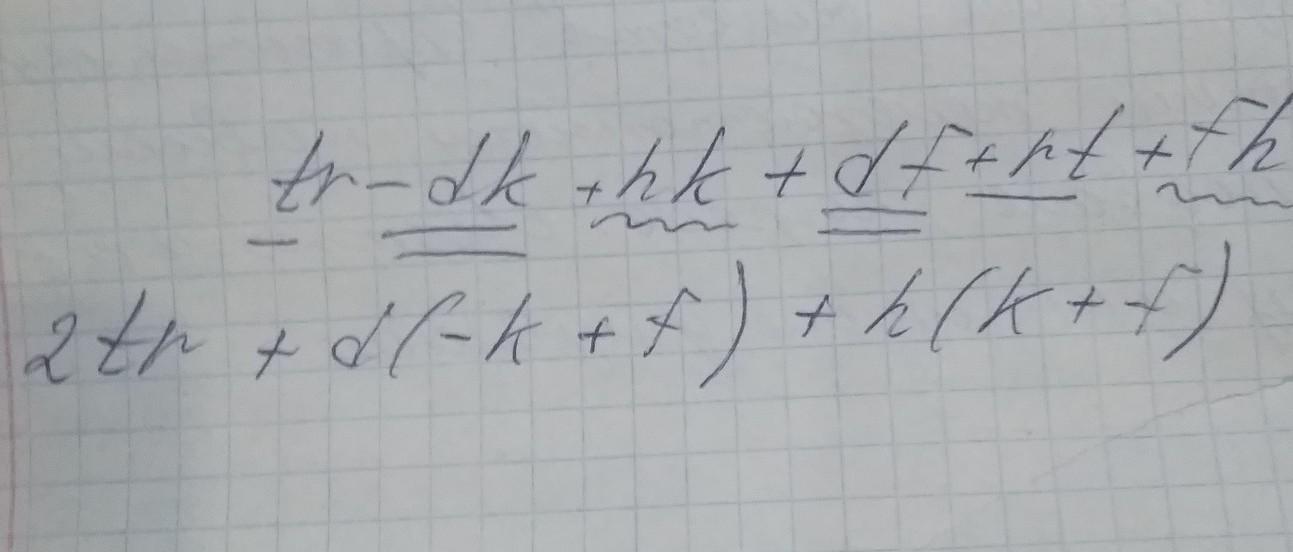 tr - dk + hk + df + rt + fh
2tr + d(-k + f) + h(k + f)